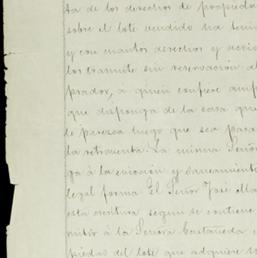 ta de los derechos de propiedad
sobre el lote vendido ha
y con cuantos derechos y
los tramite sin reservacion al
prador, a quien confiere
que disponga de la cosa que
le parezca luego que sea
la retroventa. La misma Señora
ga á la eviccion y saneamiento
legal forma. El Señor José
esta escritura segun se contiene
mitir á la Señora Castañeda
piedad del lote que adquiere